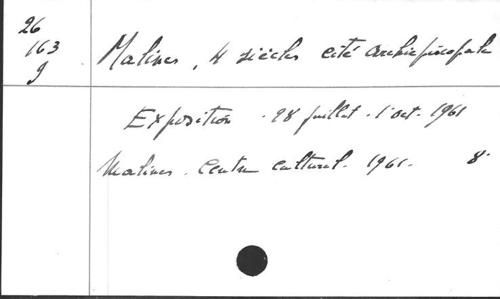 26
163
J
Malines, 4 siècles cité archiépiscopale
Exposition. 28 juillet. 1 oct. 1961
Malines. Centre culturel. 1961. 8°